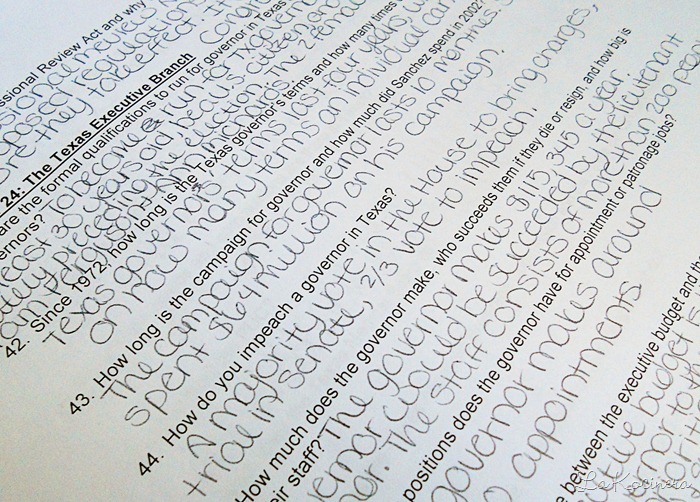 essional Review Act and why
Congressional review
posed regulations
be they take effect.
24: The Texas Executive Branch
are the formal qualifications to run for governor in Texas
ernors?
to become & run for TX governor
least 30 years old, real U.S. citizen and
preceding the election. The 2 female
Ferguson
42. Since 1972, how long is the Texas governor's terms and how many times
Texas governor's terms last four years
on how many terms an individual can
43. How long is the campaign for governor and how much did Sanchez spend in 2002?
The campaign for governor lasts 10 months. S
spent $64 million on his campaign.
44. How do you impeach a governor in Texas?
A majority vote in the House to bring charges,
trial in Senate, 2/3 vote to impeach.
How much does the governor make, who succeeds them if they die or resign, and how big is
eir staff? The governor makes $115,345 a year.
ernor would be succeeded by the lieutenant
nor. The staff consists of more than 200 people
positions does the governor have for appointment or patronage jobs?
governor makes around
0 appointments
e between the executive budget and th
tive budget is
ernor to th
LaKocinera